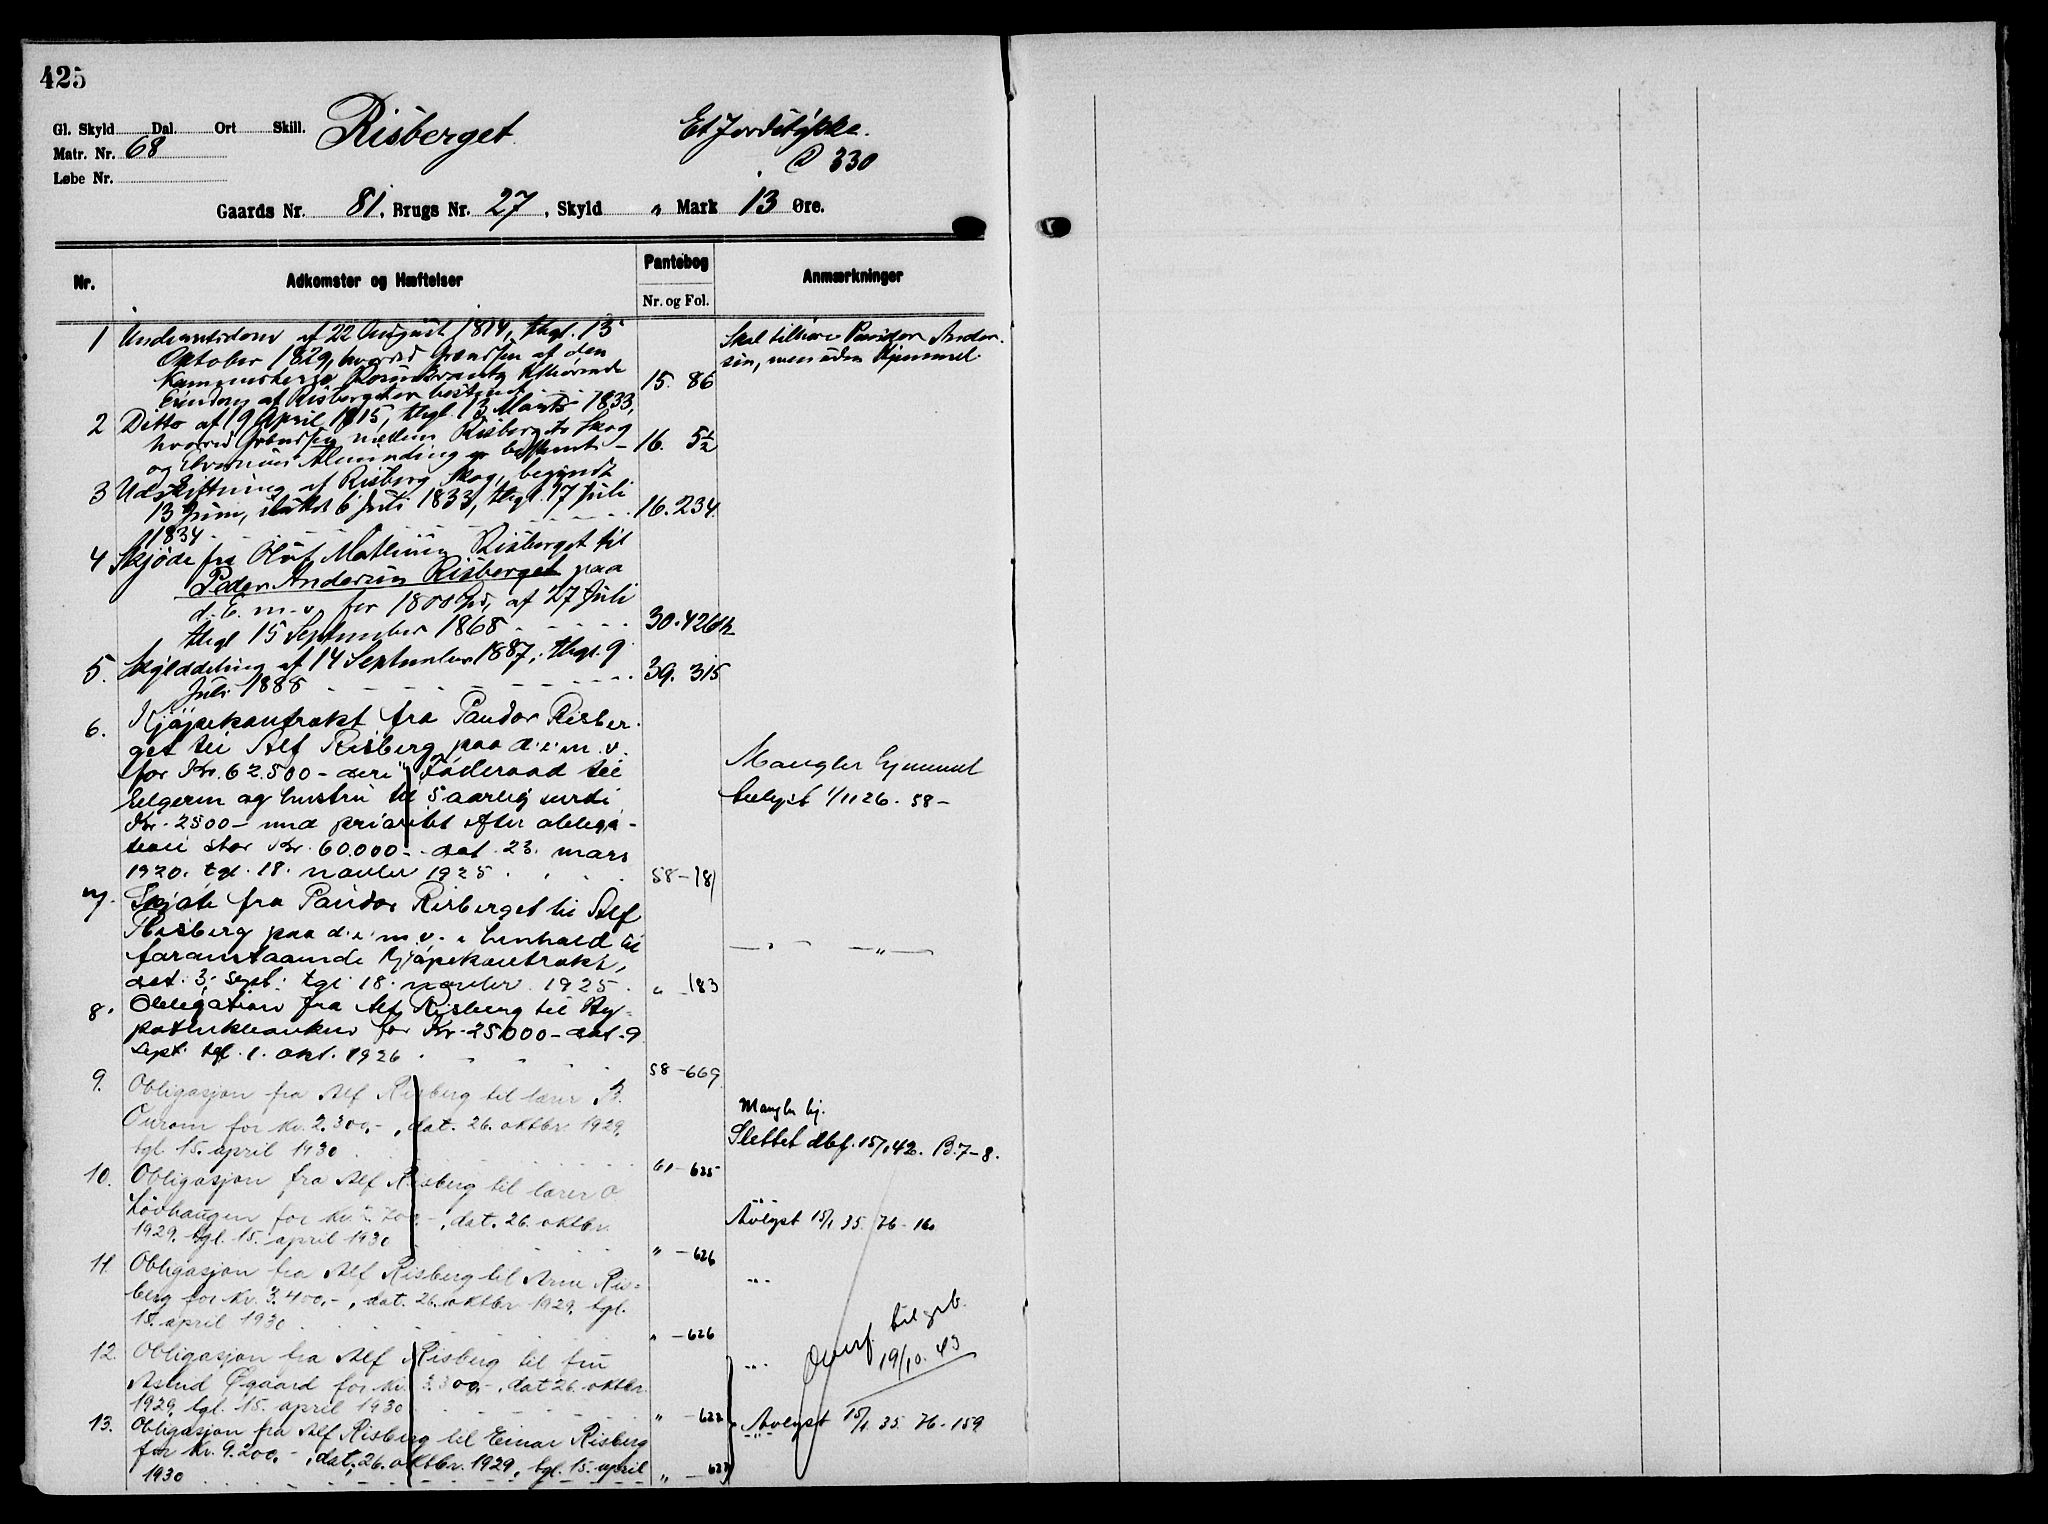 425
Gl. Skyld Dal. Ort Skill. Risberget. Et Jordstykke.
Matr. Nr. 68 330
Løbe Nr.
Gaards Nr. 81, Brugs Nr. 27, Skyld " Mark 13 Øre.
Nr. Adkomster og Hæftelser Pantebog Nr. og Fol. Anmærkninger
1 Underretsdom af 22 August 1814, thgl. 13 Skal tilhøre Paudor Ander-
Oktober 1829, hvorved Grændsen af den sen, men uden Hjemmel.
Kammerherre Rosenkrantz tilhørende 15. 86
Eiendom af Risberget er bestemt
2 Ditto af 19 April 1815, thgl. 13 Marts 1833,
hvorved Grændsen mellem Risbergets Skog 16. 5½
og Elverums Alminding er bestemt -
3 Udskiftning af Risberg Skog, begyndt
13 Juni, sluttet 6 Juli 1833, thgl. 17 Juli 16. 234.
1834
4 Skjøde fra Oluf Mathisen Risberget til
Peder Andersen Risberget paa
d. E. m. v. for 1800 Spd, af 27 Juli
thgl 15 September 1868 30. 426
5. Skylddeling af 14 September 1887, thgl. 9 39. 315
Juli 1888
6. Kjøpekontrakt fra Paudor Risber-
get til Alf Risberg paa d. e. m. v.
for Kr. 62.500 - deri Føderaad til Mangler hjemmel
selgeren og hustru til 5 aarlig verdi tinlyst 1/11 26. 58-
Kr. 2500 - med prioritet efter obliga-
tion stor Kr. 60.000 - dat. 23. mars
1920. tgl. 18. novbr 1925 58-181
7. Skjøte fra Paudor Risberget til Alf
Risberg paa d. e. m. v. i henhold til
foranstaaende kjøpekontrakt, — " — — " —
dat. 3. sept. tgl 18. novbr. 1925. " -183
8. Obligation fra Alf Risberg til Hy-
potekbanken for Kr. 25000 - dat. 9
sept. tgl. 1. okt. 1926 58-669.
9. Obligasjon fra Alf Risberg til lærer B. Mangler hj.
for kr. 2.300,-, dat. 26. oktbr. 1929, Slettet dbf. 15/1 42. B. 7-8.
tgl. 15. april 1930 61-625
10. Obligasjon fra Alf Risberg til lærer O.
Løvhaugen for kr. 2.700,-, dat. 26. oktbr. Avlyst 15/1 35. 76-160
1929, tgl. 15. april 1930 " -626
11. Obligasjon fra Alf Risberg til Arne Ris- — " —
berg for kr. 3.400,-, dat. 26. oktbr. 1929, tgl.
15. april 1930 " -626
12. Obligasjon fra Alf Risberg til fru — " — Overf. til grb.
Astrid Øgaard for kr. 3.300,-, dat 26. oktbr. 19/10. 43
1929, tgl. 15. april 1930 " -622
13. Obligasjon fra Alf Risberg til Einar Risberg Avlyst 15/1 35. 76-159
for kr. 9.200,-, dat. 26. oktbr. 1929, tgl. 15. april
1930 " -623